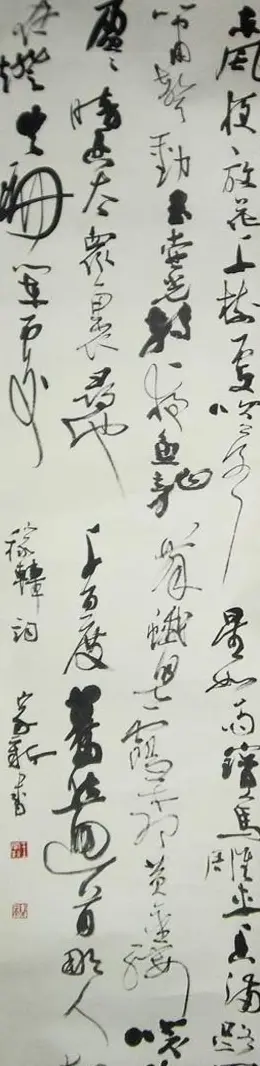 東風夜放花千樹更吹落星如雨寶馬雕車香滿路
簫聲動玉壺光轉一夜魚龍舞蛾兒雪柳黃金縷笑
盈盈暗香去眾裏尋他千百度驀然回首那人
在燈火珊
稼軒詞